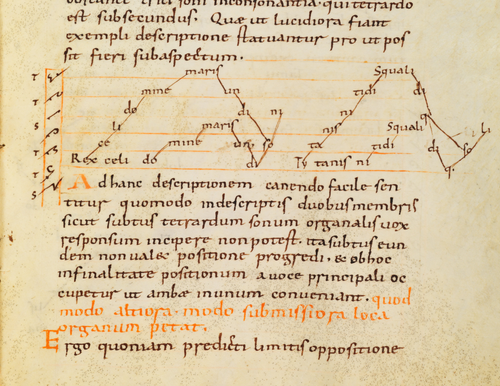 est subsecundus. Quæ ut lucidiora fiant
exempli descriptione statuantur pro ut pos
sit fieri subaspectum.
maris Squali
mine un tidi di
do di ni nis
li maris ta Squali
ce un so ta di so
Rex celi do mine di Ty tanis ni tidi
Ad hanc descriptionem canendo facile sen
titur quomodo indescriptis duobus membris
sicut subtus tetrardum sonum organalis vox
responsum incipere non potest. ita subtus eun
dem non valeæ positione progredi. & ob hoc
in finalitate positionum a voce principali oc
cupetur ut ambæ inunum conveniant. quod
modo altiora. modo submissiora loca
organum petat.
Ergo quoniam predicti limitis oppositione